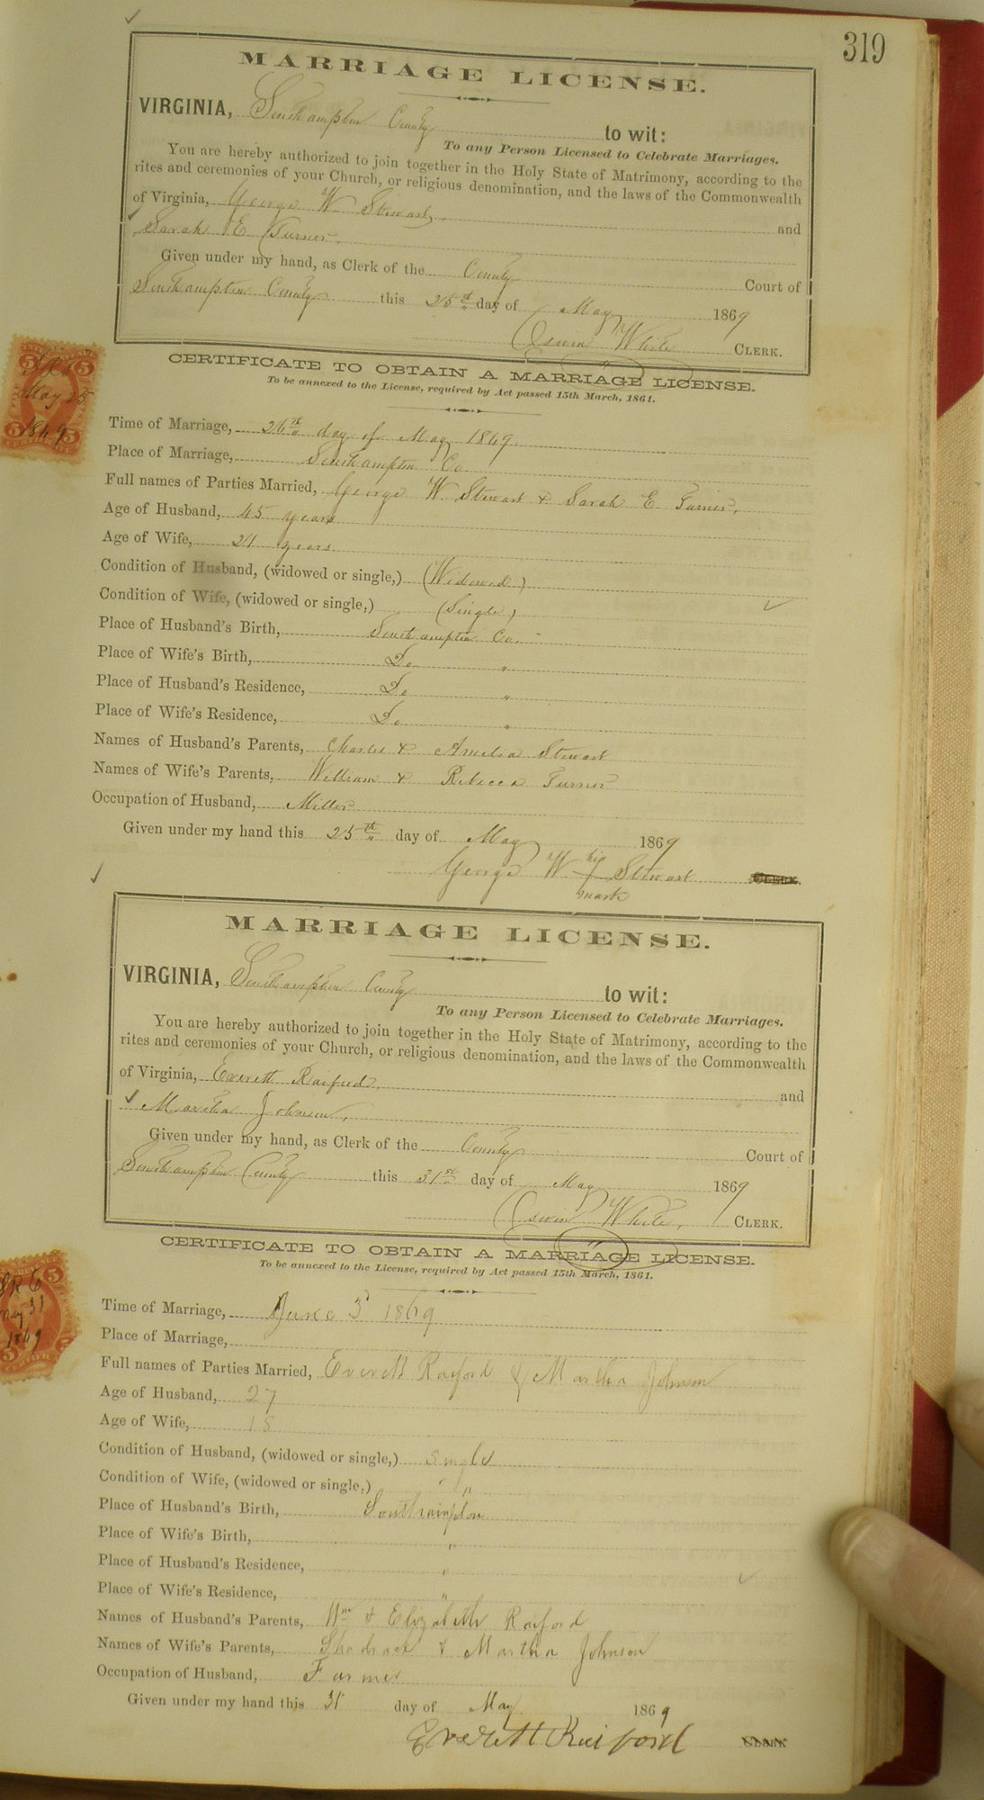 319
MARRIAGE LICENSE.
VIRGINIA, Southampton County to wit:
To any Person Licensed to Celebrate Marriages.
You are hereby authorized to join together in the Holy State of Matrimony, according to the
rites and ceremonies of your Church, or religious denomination, and the laws of the Commonwealth
of Virginia, George W Stewart, and
Sarah E Turner.
Given under my hand, as Clerk of the County Court of
Southampton County this 25th day of May 1869
White CLERK.
CERTIFICATE TO OBTAIN A MARRIAGE LICENSE.
To be annexed to the License, required by Act passed 15th March, 1861.
May 25
1869
Time of Marriage, 26th day of May 1869.
Place of Marriage, Southampton Co.
Full names of Parties Married, George W Stewart & Sarah E Turner,
Age of Husband, 45 years
Age of Wife, 21 years
Condition of Husband, (widowed or single,) (Widowed)
Condition of Wife, (widowed or single,) (Single)
Place of Husband's Birth, Southampton Co.
Place of Wife's Birth, Do "
Place of Husband's Residence, Do "
Place of Wife's Residence, Do "
Names of Husband's Parents, Charles & Amelia Stewart
Names of Wife's Parents, William & Rebecca Turner
Occupation of Husband, Miller
Given under my hand this 25th day of May 1869
George W his Stewart CLERK.
mark
MARRIAGE LICENSE.
VIRGINIA, Southampton County to wit:
To any Person Licensed to Celebrate Marriages.
You are hereby authorized to join together in the Holy State of Matrimony, according to the
rites and ceremonies of your Church, or religious denomination, and the laws of the Commonwealth
of Virginia, Everett Raiford, and
Martha Johnson,
Given under my hand, as Clerk of the County Court of
Southampton County this 31st day of May 1869
White, CLERK.
CERTIFICATE TO OBTAIN A MARRIAGE LICENSE.
To be annexed to the License, required by Act passed 15th March, 1861.
May 31
1869
Time of Marriage, June 3d 1869
Place of Marriage,
Full names of Parties Married, Everett Raiford & Martha Johnson
Age of Husband, 27
Age of Wife, 18
Condition of Husband, (widowed or single,) single
Condition of Wife, (widowed or single,) "
Place of Husband's Birth, Southampton
Place of Wife's Birth, "
Place of Husband's Residence, "
Place of Wife's Residence, "
Names of Husband's Parents, Wm & Elizabeth Raiford
Names of Wife's Parents, Shadrack & Martha Johnson
Occupation of Husband, Farmer
Given under my hand this 31 day of May 1869
Everett Raiford CLERK